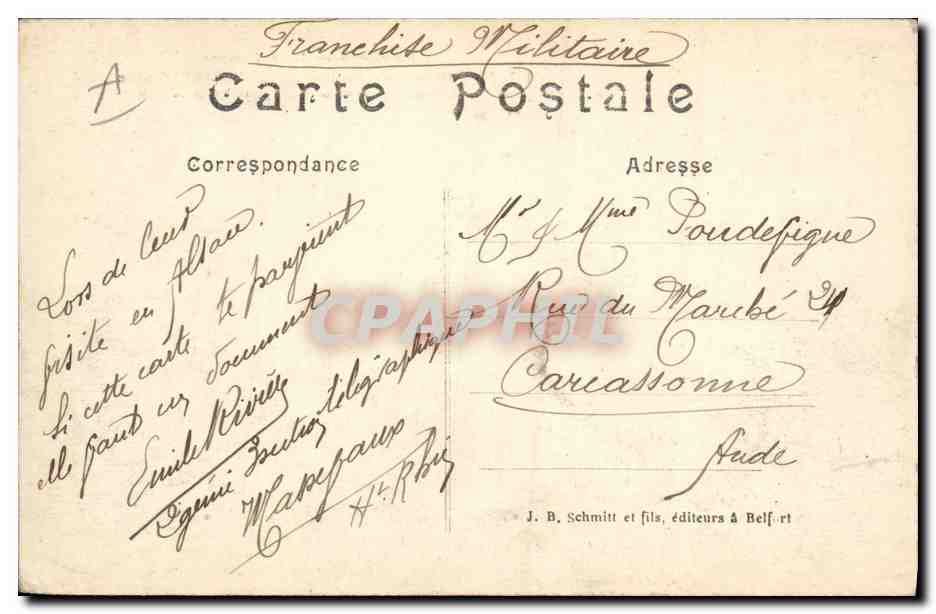 Franchise Militaire
A
Carte Postale
Correspondance
Lors de leur
visite en Alsace.
Si cette carte te parvient
elle faut un document
Emile Rivière
Génie Section télégraphique
Massevaux
Ht Rhin
Adresse
Mr & Mme Poudefigue
Rue du Marché 24
Carcassonne
Aude
J. B. Schmitt et fils, éditeurs à Belfort
CPAPHIL